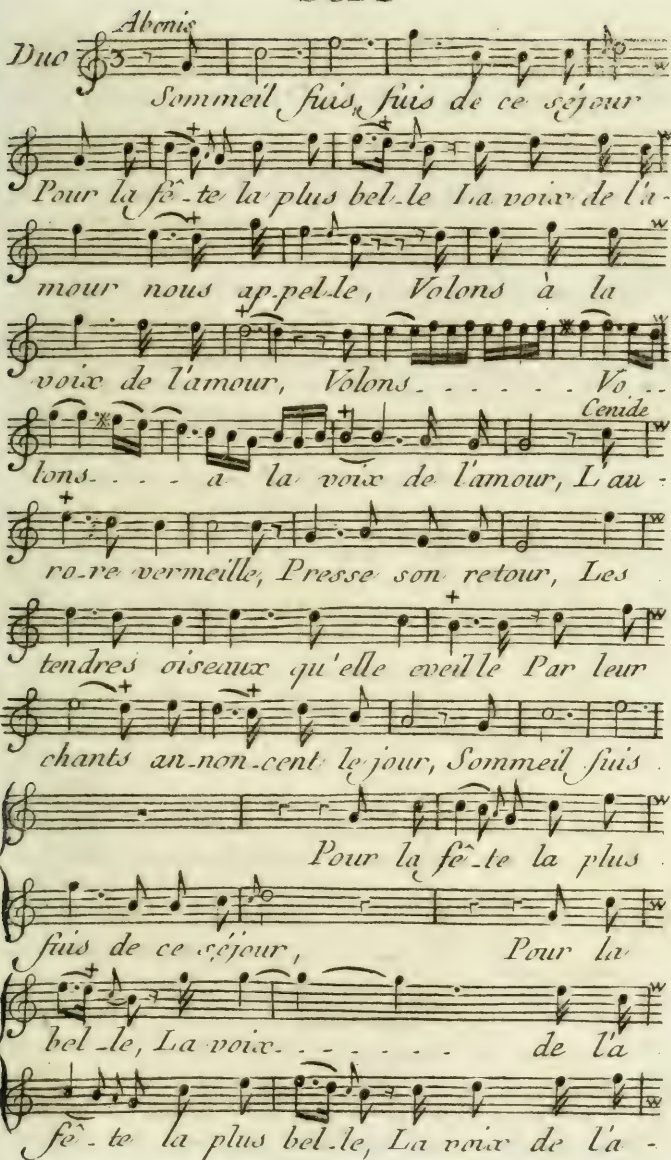 Abonis
Duo
3
Sommeil fuis, fuis de ce séjour
Pour la fê-te la plus bel-le La voix de l'a-
mour nous ap-pel-le, Volons à la
voix de l'amour, Volons . . . . . . . Vo . .
Cenide
lons . . . . a la voix de l'amour, L'au-
ro-re vermeille, Presse son retour, Les
tendres oiseaux qu'elle eveille Par leur
chants an-non-cent le jour, Sommeil fuis
Pour la fê-te la plus
fuis de ce séjour, Pour la
bel-le, La voix . . . . . . . . de l'a
fê-te la plus bel-le, La voix de l'a-